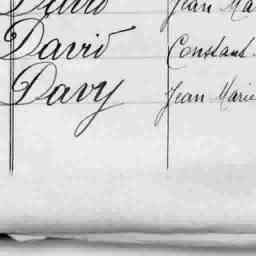 David Jean Ma
David Constant
Davy Jean Marie